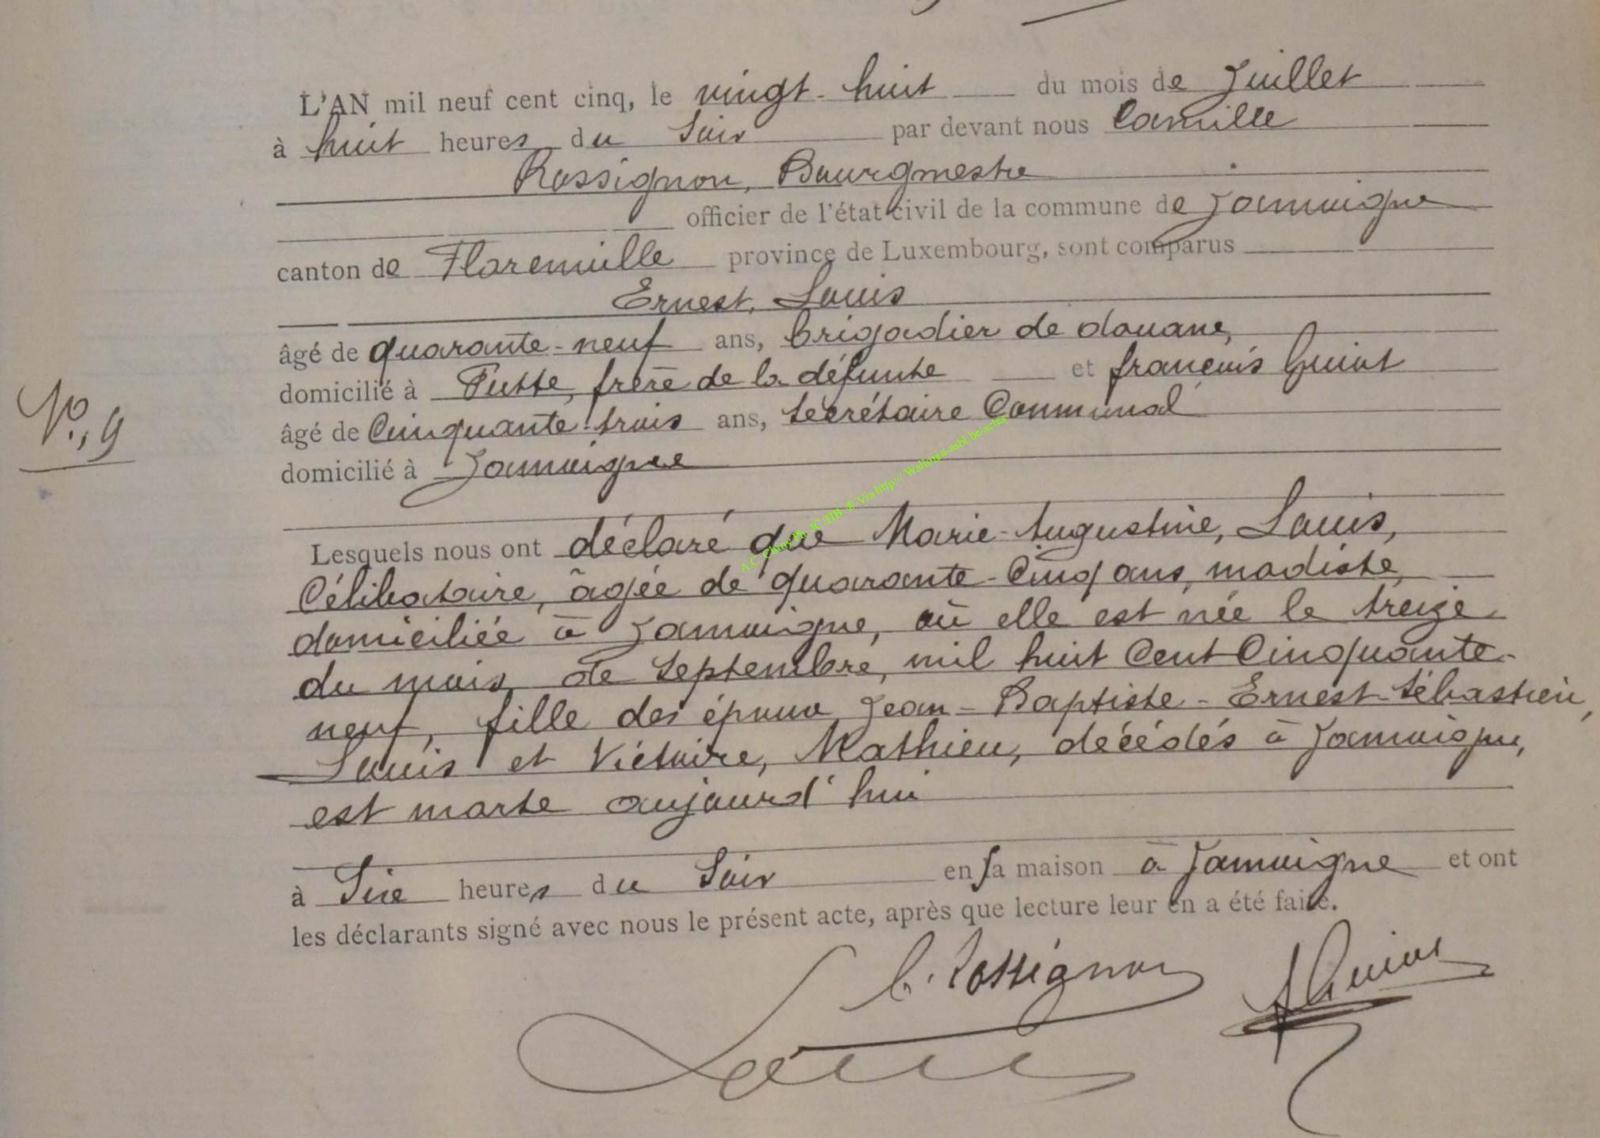 L'AN mil neuf cent cinq, le vingt-huit du mois de Juillet
à huit heures du Soir par devant nous Camille
Rossignon, Bourgmestre
officier de l'état civil de la commune de Jamoigne
canton de Florenville province de Luxembourg, sont comparus
Ernest, Louis
âgé de quarante-neuf ans, brigadier de douane,
domicilié à Putte, frère de la défunte et françois Guiot
âgé de Cinquante-trois ans, Secrétaire Communal
domicilié à Jamoigne
N°. 9
Lesquels nous ont déclaré que Marie-Augustine, Louis,
Célibataire, âgée de quarante-Cinq ans, modiste,
domiciliée à Jamoigne, où elle est née le treize
du mois de Septembre, mil huit Cent Cinquante-
neuf, fille des époux Jean-Baptiste-Ernest-Sébastien,
Louis et Victoire, Mathieu, décédés à Jamoigne,
est morte aujourd'hui
à Six heures du Soir en sa maison à Jamoigne et ont
les déclarants signé avec nous le présent acte, après que lecture leur en a été faite.
C. Rossignon
Louis